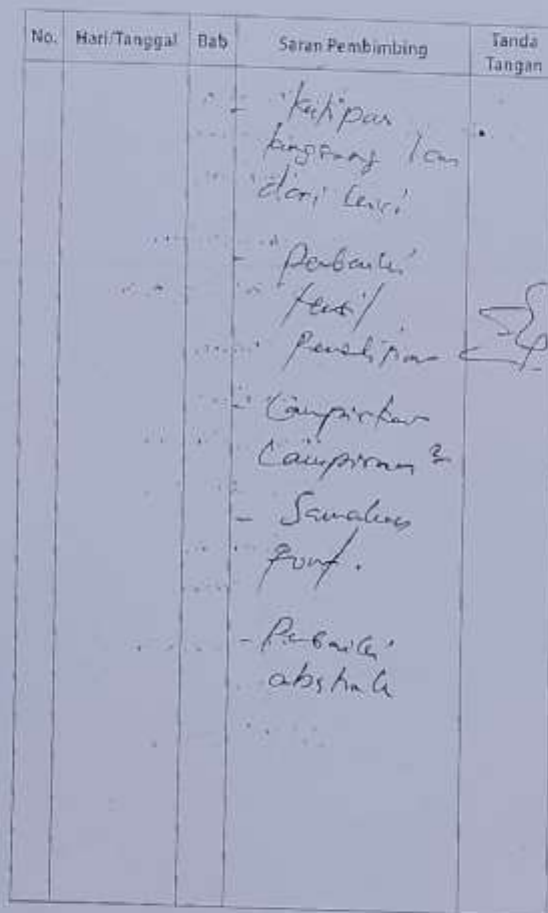 No. Hari/Tanggal Bab Saran Pembimbing Tanda Tangan
- kutipan
langsung 1 cm
dari kiri
- Perbaiki
hasil
Penelitian
- Lampirkan
Lampiran²
- Samakan
font.
- Perbaiki
abstrak